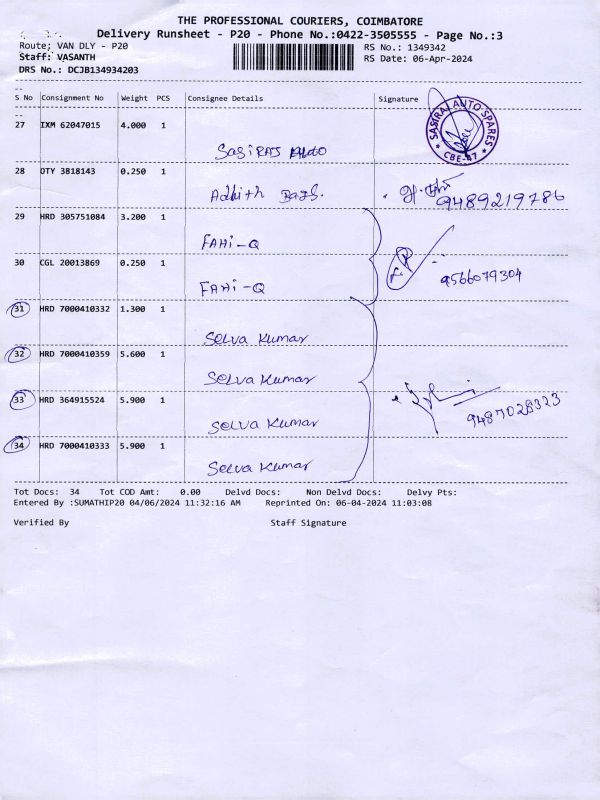 THE PROFESSIONAL COURIERS, COIMBATORE
Delivery Runsheet - P20 - Phone No.:0422-3505555 - Page No.:3
Route; VAN DLY - P20
RS No.: 1349342
Staff: VASANTH
RS Date: 06-Apr-2024
DRS No.: DCJB134934203
S No Consignment No Weight PCS Consignee Details Signature
27 IXM 62047015 4.000 1
SASIRAJ AUTO SPARES
CBE-47
SasiRAJ Auto
28 OTY 3818143 0.250 1
Adhith Bags.
9489219786
29 HRD 305751084 3.200 1
FAHi-Q
30 CGL 20013869 0.250 1
9566079304
FAHi-Q
31 HRD 7000410332 1.300 1
Selva Kumar
32 HRD 7000410359 5.600 1
Selva Kumar
33 HRD 364915524 5.900 1
9487028323
Selva Kumar
34 HRD 7000410333 5.900 1
Selva Kumar
Tot Docs: 34 Tot COD Amt: 0.00 Delvd Docs: Non Delvd Docs: Delvy Pts:
Entered By :SUMATHIP20 04/06/2024 11:32:16 AM Reprinted On: 06-04-2024 11:03:08
Verified By Staff Signature